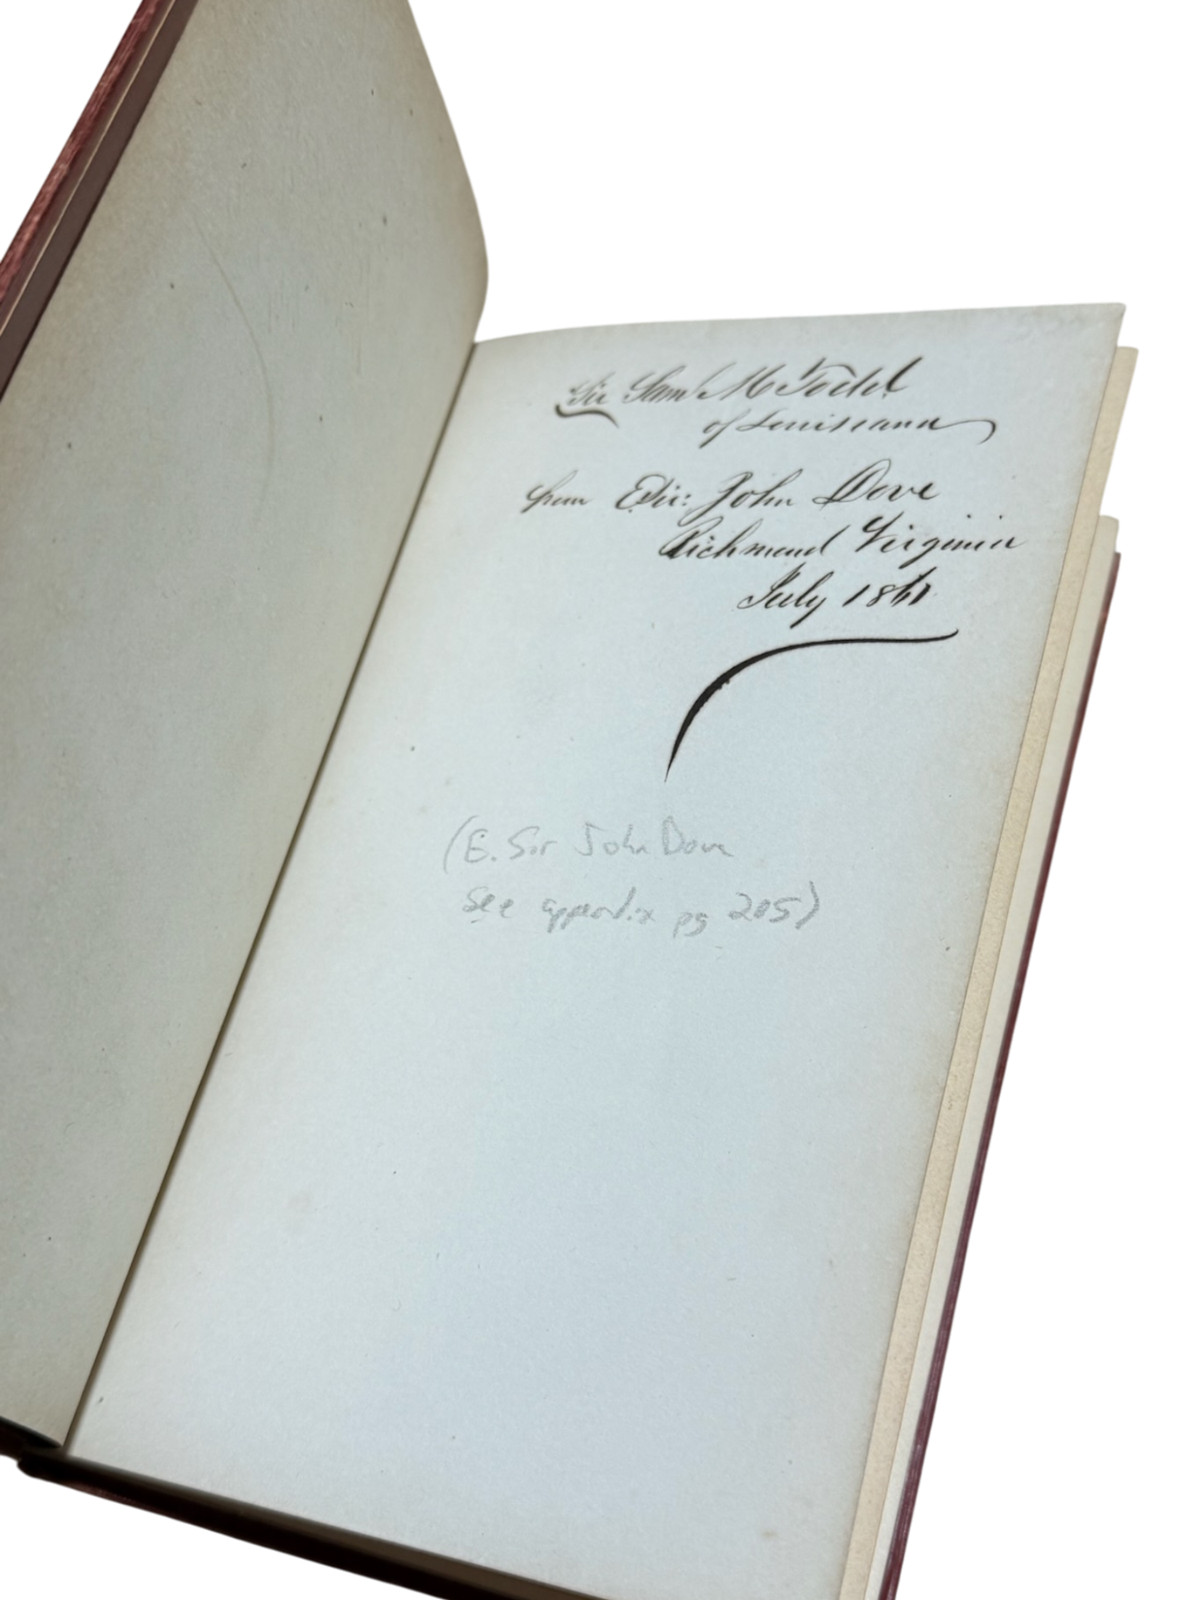 Sir Sam'l M Todd
of Louisiana
from E. Sir: John Dove
Richmond Virginia
July 1861
(E. Sir John Dove
See appendix pg 205)